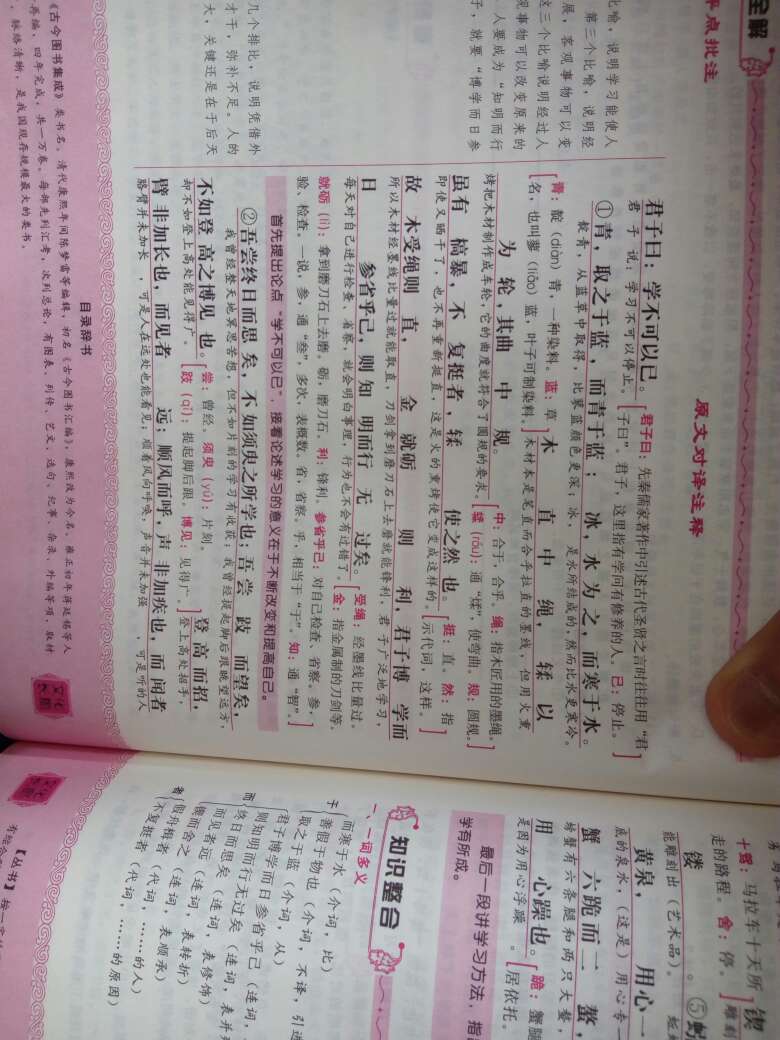 全解
平点批注
比喻，说明学习能使人
第三个比喻，说明经
展，客观事物可以变
这三个比喻说明经过人
观事物可以改变原来的
人要成为“知明而行
子，就要“博学而日参
几个排比，说明凭借外
才干，弥补不足。人的
大，关键还是在于后天
原文对译注释
君子曰：学不可以已。
君子说：学习不可以停止。
[君子曰：先秦儒家著作中引述古代圣贤之言时往往用“君
子曰”。君子，这里指有学问有修养的人。已：停止。]
①青，取之于蓝，而青于蓝；冰，水为之，而寒于水。
靛青，从蓝草中取得，比蓼蓝颜色更深；冰，是水所结成的，然而比水更寒冷。
[青：靛（diàn）青，一种染料。蓝：草
名，也叫蓼（liǎo）蓝，叶子可制染料。]
木直中绳，𫐓以
木材本是笔直而合乎拉直的墨线，但用火熏
为轮，其曲中规。
烤把木材制作成车轮，它的曲度就符合了圆规的要求。
[中：合于，合乎。绳：指木匠用的墨绳。
𫐓（róu）：通“煣”，使弯曲。规：圆规。]
虽有槁暴，不复挺者，𫐓使之然也。
即使又晒干了，也不再重新挺直，这是火的熏烤使它变成这样的。
[挺：直。然：指
示代词，这样。]
故木受绳则直，金就砺则利，君子博学而
所以木材经墨线比量过就能取直，刀剑拿到磨刀石上去磨就能锋利，君子广泛地学习，
日参省乎己，则知明而行无过矣。
每天对自己进行检查、省察，就会明白事理，行为也不会有过错了。
[受绳：经墨线比量过。
金：指金属制的刀剑等。
就砺（lì）：拿到磨刀石上去磨。砺，磨刀石。利：锋利。参省乎己：对自己检查、省察。参，
验、检查。一说，参，通“叁”，多次，表概数。省，省察。乎，相当于“于”。知：通“智”。]
首先提出论点“学不可以已”，接着论述学习的意义在于不断改变和提高自己。
②吾尝终日而思矣，不如须臾之所学也；吾尝跂而望矣，
我曾经整天地冥思苦想，但不如片刻的学习有收获；我曾经提起脚后跟眺望远方，
不如登高之博见也。
却不如登上高处能见得广。
[尝：曾经。须臾（yú）：片刻。
跂（qǐ）：提起脚后跟。博见：见得广。]
登高而招，
登上高处招手，
臂非加长也，而见者远；顺风而呼，声非加疾也，而闻者
胳臂并未加长，可是人在远处也能看见；顺着风向呼喊，声音并未加强，可是听的人
目录辞书
《古今图书集成》类书名。清代康熙年间陈梦雷等编辑，初名《古今图书汇编》，康熙改为今名。雍正初年蒋廷锡等人
再编，四年完成，共一万卷。每部先列汇考，次列总论，有图表、列传、艺文、选句、纪事、杂录、外编等项，取材
脉络清晰，是我国现存规模最大的类书。
文化
十驾：马拉车十天所
走的路程。舍：停。]
锲
雕刻
镂
能雕刻出（艺术品）。
⑤蚓
黄泉，用心一
点的泉水，（这是）用心专一
蟹六跪而二螯，
螃蟹有六条腿和两只大螯，
用心躁也。
是因为用心浮躁。
[跪：蟹腿
居依托。
最后一段讲学习方法，指
学有所成。
知识整合
一、一词多义
于
而寒于水（介词，比）
善假于物也（介词，不译，引进
取之于蓝（介词，从）
而
君子博学而日参省乎己（连词，
则知明而行无过矣（连词，表并列
终日而思矣（连词，表修饰）
而见者远（连词，表转折）
锲而舍之（连词，表顺承）
者
假舟楫者（代词，……的人）
不复挺者（代词，……的原因）
【丛书】按一定